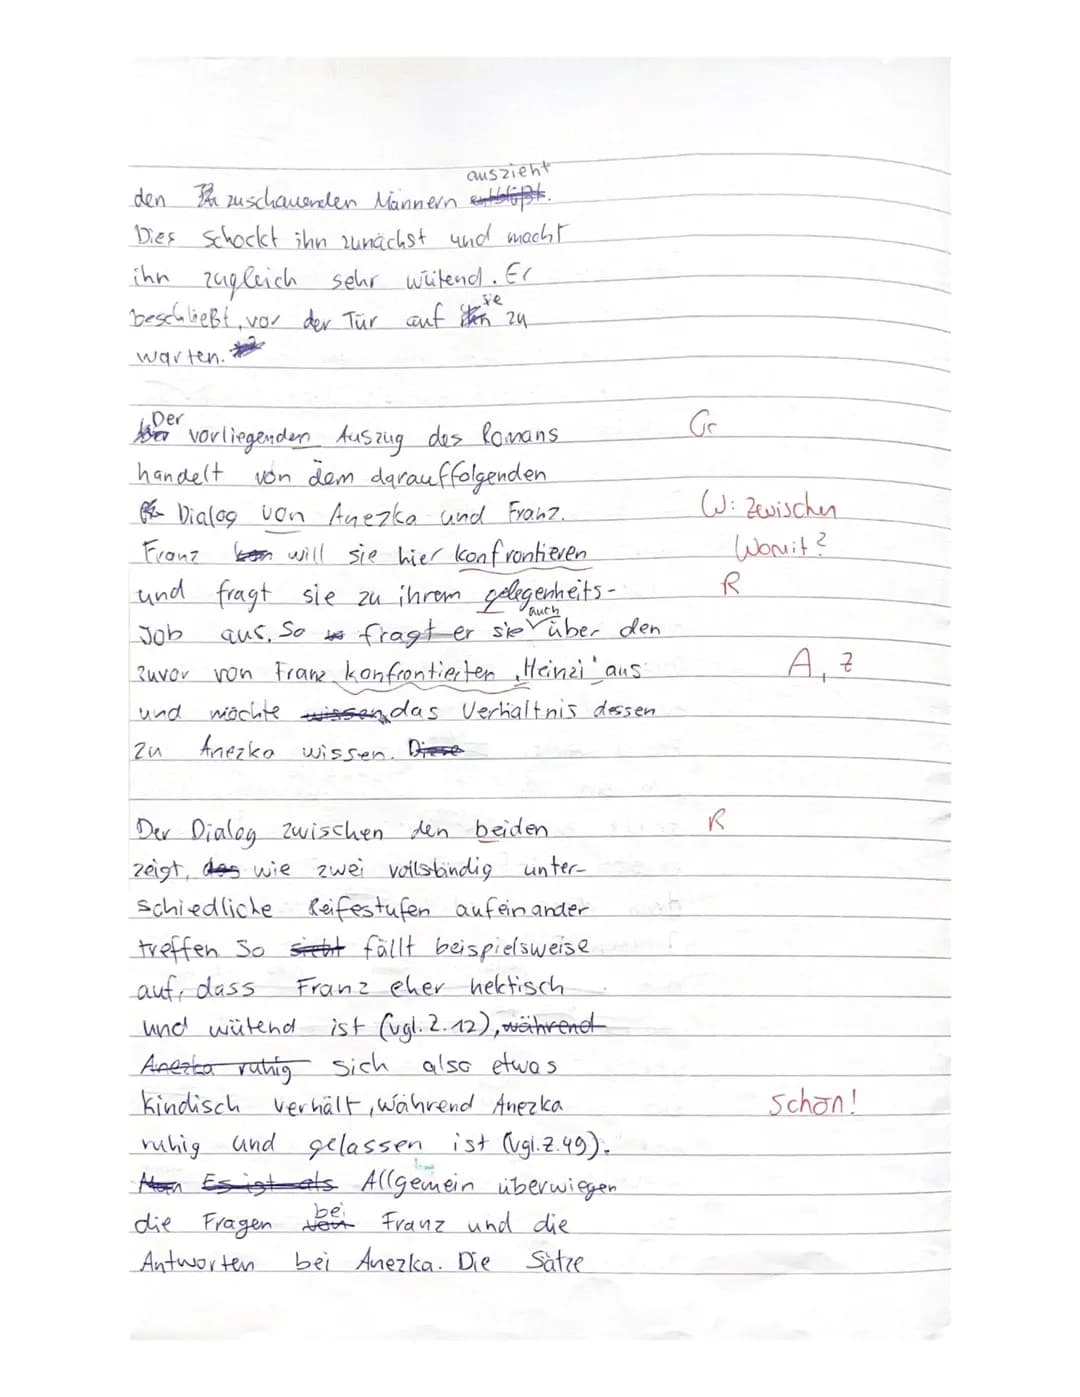 auszieht
den zuschauenden Männern entblößt.
Dies schockt ihn zunächst und macht
ihn zugleich sehr wütend. Er
sie
beschließt, vor der Tür auf ihn zu
warten.
Der
vorliegenden Auszug des Romans Gr
handelt von dem darauffolgenden
Dialog von Anezka und Franz. W: zwischen
Franz will sie hier konfrontieren Womit?
und fragt sie zu ihrem gelegenheits- R
auch
Job aus. So fragt er sie über den
zuvor von Franz konfrontierten „Heinzi' aus A, Z
und möchte wissen das Verhältnis dessen
zu Anezka wissen. Diese
Der Dialog zwischen den beiden R
zeigt, das wie zwei vollständig unter-
schiedliche Reifestufen aufeinander
treffen So sieht fällt beispielsweise
auf, dass Franz eher hektisch
und wütend ist (vgl. Z. 12), während
Anezka ruhig sich also etwas
kindisch verhält, während Anezka schön!
ruhig und gelassen ist (vgl. Z. 49).
Man Es ist als Allgemein überwiegen
bei
die Fragen von Franz und die
Antworten bei Anezka. Die Sätze